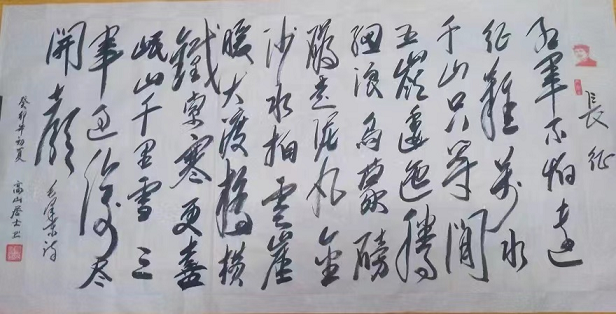 長征
红軍不怕遠
征難萬水
千山只等閒
五嶺逶迤騰
細浪烏蒙磅
礴走泥丸金
沙水拍雲崖
暖大渡橋橫
鐵索寒更喜
岷山千里雪三
軍过後尽
開顏
毛澤东詩
癸卯年初夏 高山居士书